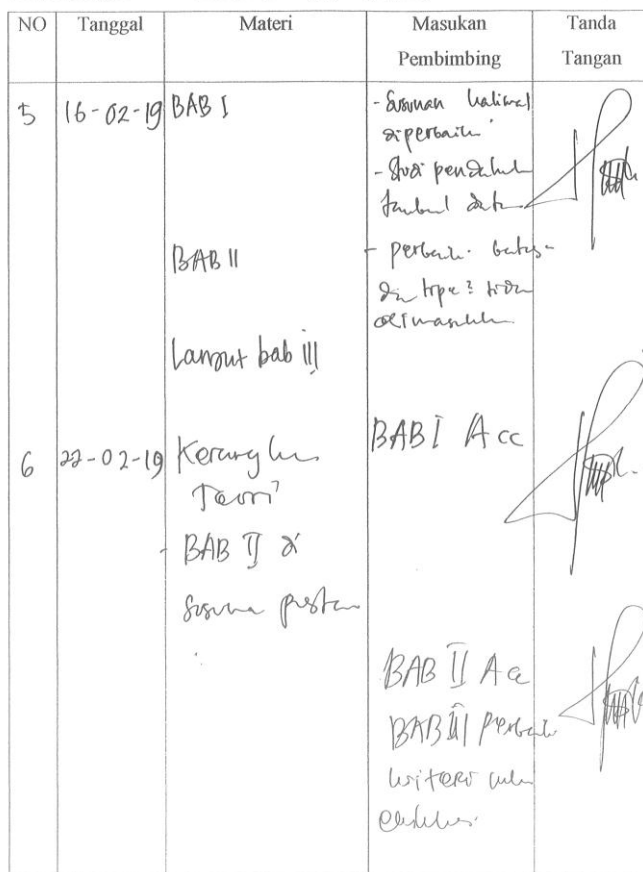 NO Tanggal Materi Masukan Pembimbing Tanda Tangan
5 16-02-19 BAB I - Susunan kalimat
diperbaiki
- Studi pendahul
tambah data
BAB II - perbaiki
Lanjut bab III
6 22-02-19 Kerangka BAB I Acc
Teori
- BAB II di
BAB II Acc
BAB III perbaiki